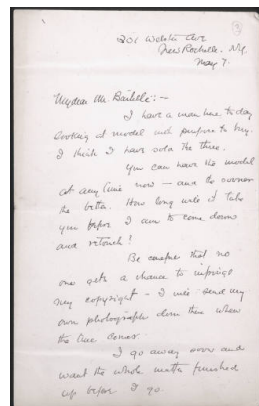 201 Webster Ave
New Rochelle. N.Y.
May 7.
My dear Mr.
I have a man here to-day
looking at model with purpose to buy.
I think I have sold the three.
You can have the model
at any time now — and the sooner
the better. How long will it take
you before I am to come down
and retouch!
Be careful that no
one gets a chance to infringe
my copyright — I will send my
own photographer down there when
the time comes.
I go away soon and
want the whole matter finished
up before I go.